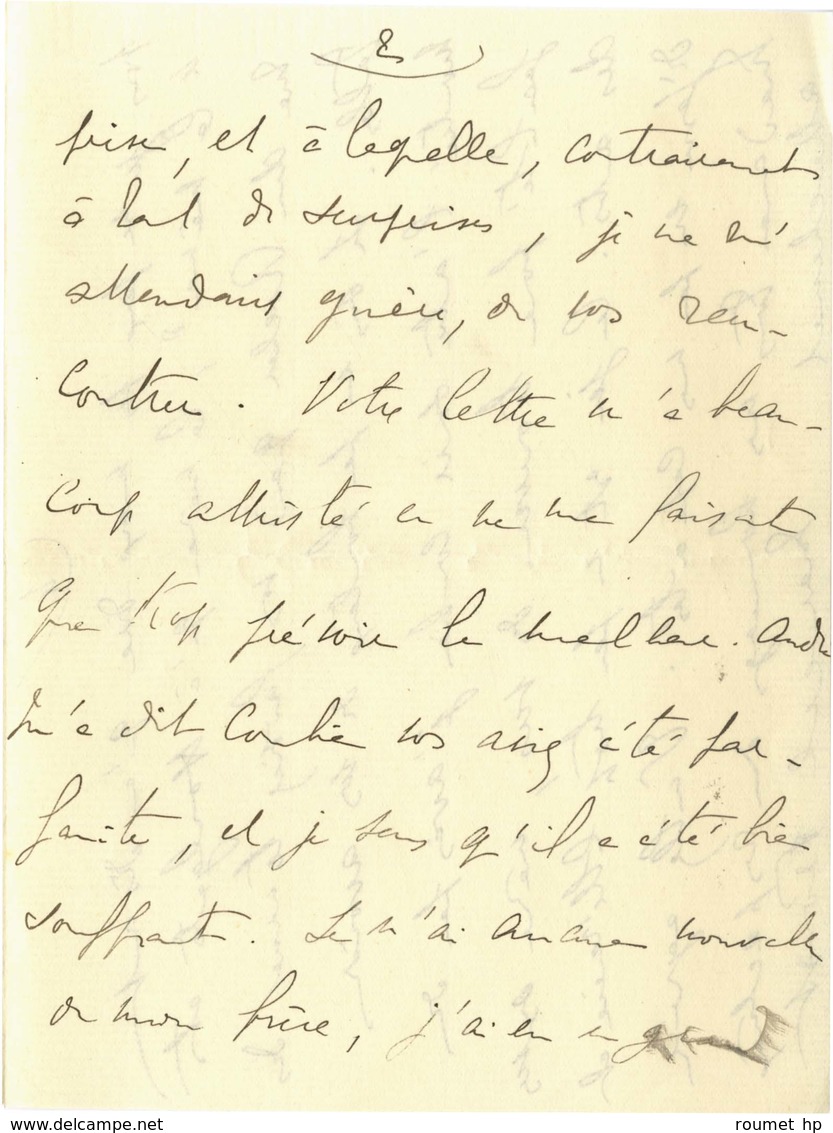 2
prise, et à laquelle, contrairement
à tant de surprises, je ne m'
attendais guère, de vos ren-
contres. Votre lettre m'a beau-
coup attristé en ne me faisant
que trop prévoir le malheur. André
m'a dit combien vous aviez été par-
faite, et je sens qu'il a été bien
souffrant. Je n'ai aucune nouvelle
de mon frère, j'ai eu un grand
www.delcampe.net
roumet hp